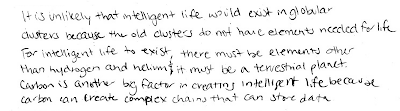 It is unlikely that intelligent life would exist in globular
clusters because the old clusters do not have elements needed for life
For intelligent life to exist, there must be elements other
than hydrogen and helium & it must be a terrestrial planet.
Carbon is another big factor in creating intelligent life because
carbon can create complex chains that can store data